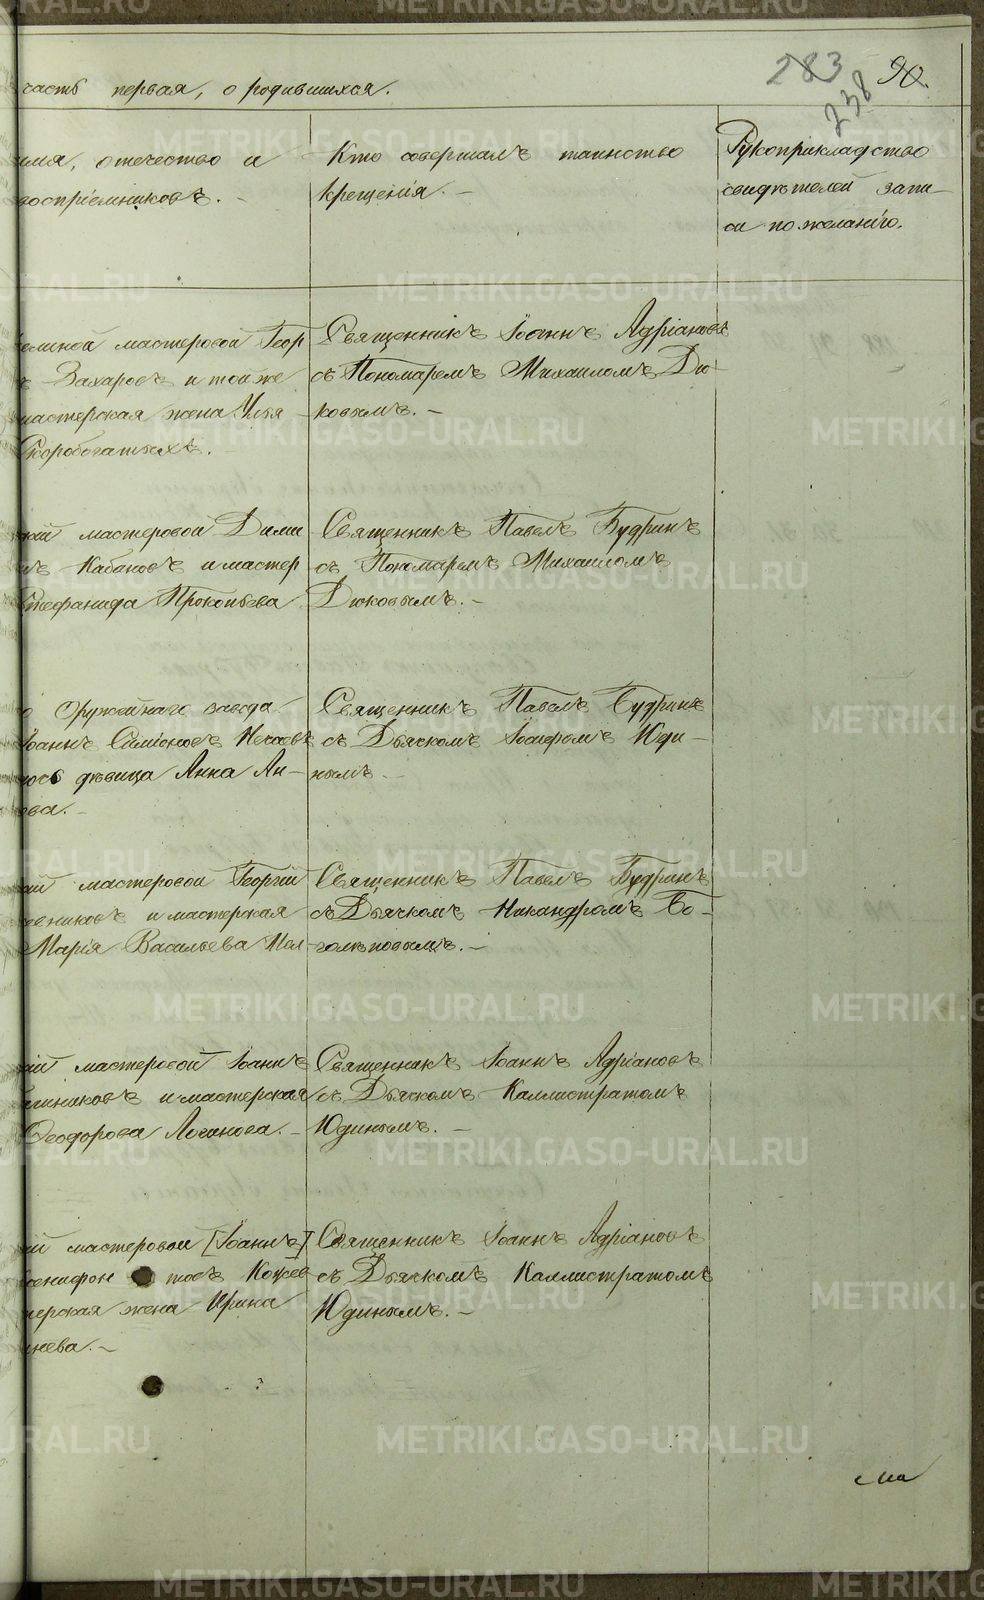 283 90.
238
часть первая, о родившихся.
имя, отечество и
воспріемниковъ. -
Кто совершалъ таинство
крещенія. -
Рукоприкладство
свидѣтелей запи-
си по желанію.
мастеровой Геор
Захаровъ и тои же
мастерская жена Улья
Скоробогатыхъ.
Священникъ Іоаннъ Адріановъ
съ Пономаремъ Михаиломъ Дю-
ковымъ. -
кій мастеровой Дими
Кабаковъ и мастер
Стефанида Прокопьева
Священникъ Павелъ Будринъ
съ Пономаремъ Михаиломъ
Дюковымъ. -
Оружейнаго завода
Іоаннъ Симіоновъ Нечаевъ
дѣвица Анна Ан-
ова. -
Священникъ Павелъ Будринъ
съ Дьячкомъ Іосифомъ Юди-
нымъ. -
кій мастеровой Георгій
евниковъ и мастерская
Марія Васильева
Священникъ Павелъ Будринъ
съ Дьячкомъ Никандромъ Бо-
голѣповымъ. -
кій мастеровой Іоаннъ
никовъ и мастерская
Ѳеодорова Логинова. -
Священникъ Іоаннъ Адріановъ
съ Дьячкомъ Каллистратомъ
Юдинымъ. -
кій мастеровой [Іоаннъ]
сенифон товъ Кожев
терская жена Ирина
нева. -
Священникъ Іоаннъ Адріановъ
съ Дьячкомъ Каллистратомъ
Юдинымъ. -
METRIKI.GASO-URAL.RU